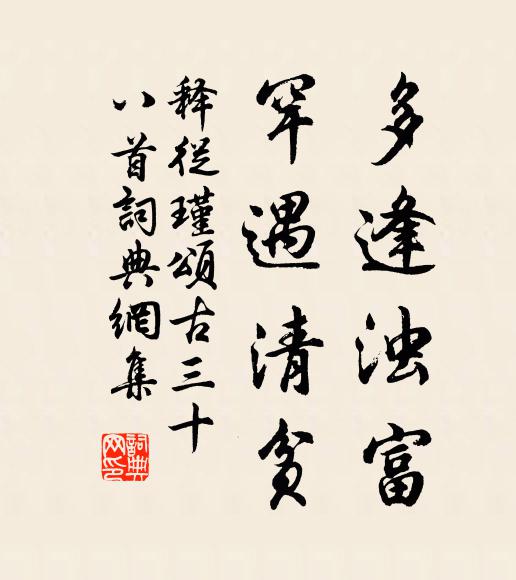 多逢浊富
罕遇清貧
释從瑾頌古三十
八首詞典網集
詞典網印